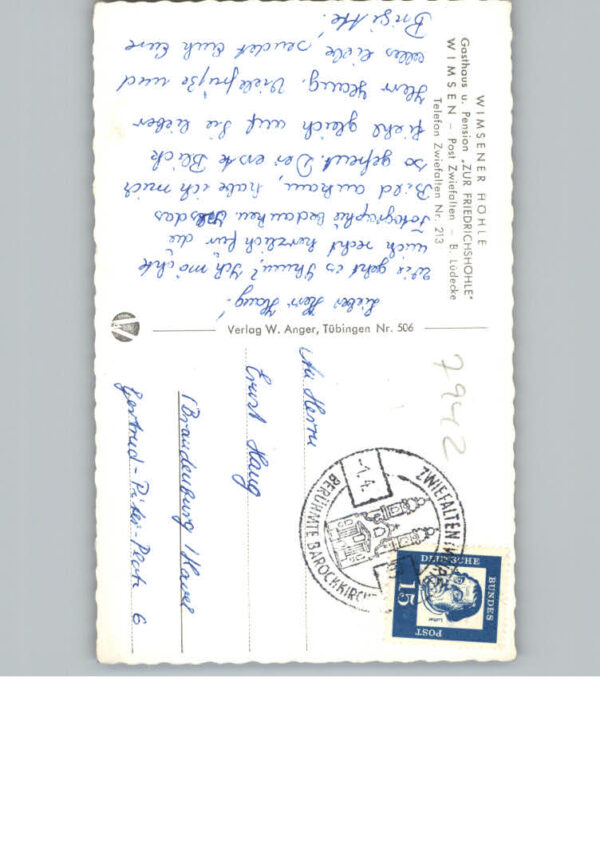 WIMSENER HÖHLE
Gasthaus u. Pension „ZUR FRIEDRICHSHÖHLE"
WIMSEN – Post Zwiefalten – B. Lüdecke
Telefon Zwiefalten Nr. 213
Lieber Herr Haug!
Wie geht es Ihnen? Ich möchte
mich recht herzlich für die
Fotographie bedanken. das
Bild ankam, habe ich mich
so gefreut. Der erste Blick
fiehl gleich auf Sie lieber
Herr Haug. Viele Grüße und
alles Liebe, sendet Euch Eure
Brigitte.
Verlag W. Anger, Tübingen Nr. 506
An Herrn
Ernst Haug
(Brandenburg/Havel
Gertrud-Piter-Platz 6
7942
ZWIEFALTEN
-1.4.
BERÜHMTE BAROCKKIRCHE
DEUTSCHE
BUNDES
POST
15
Luther